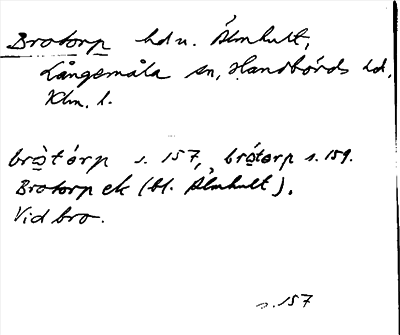 Brotorp hd u. Älmhult,
Långemåla sn, Handbörds hd,
Klm. l.
brò̲tórp s. 157, bró̲torp s. 159.
Brotorp ek (bl. Älmhult).
Vid bro.
s. 157